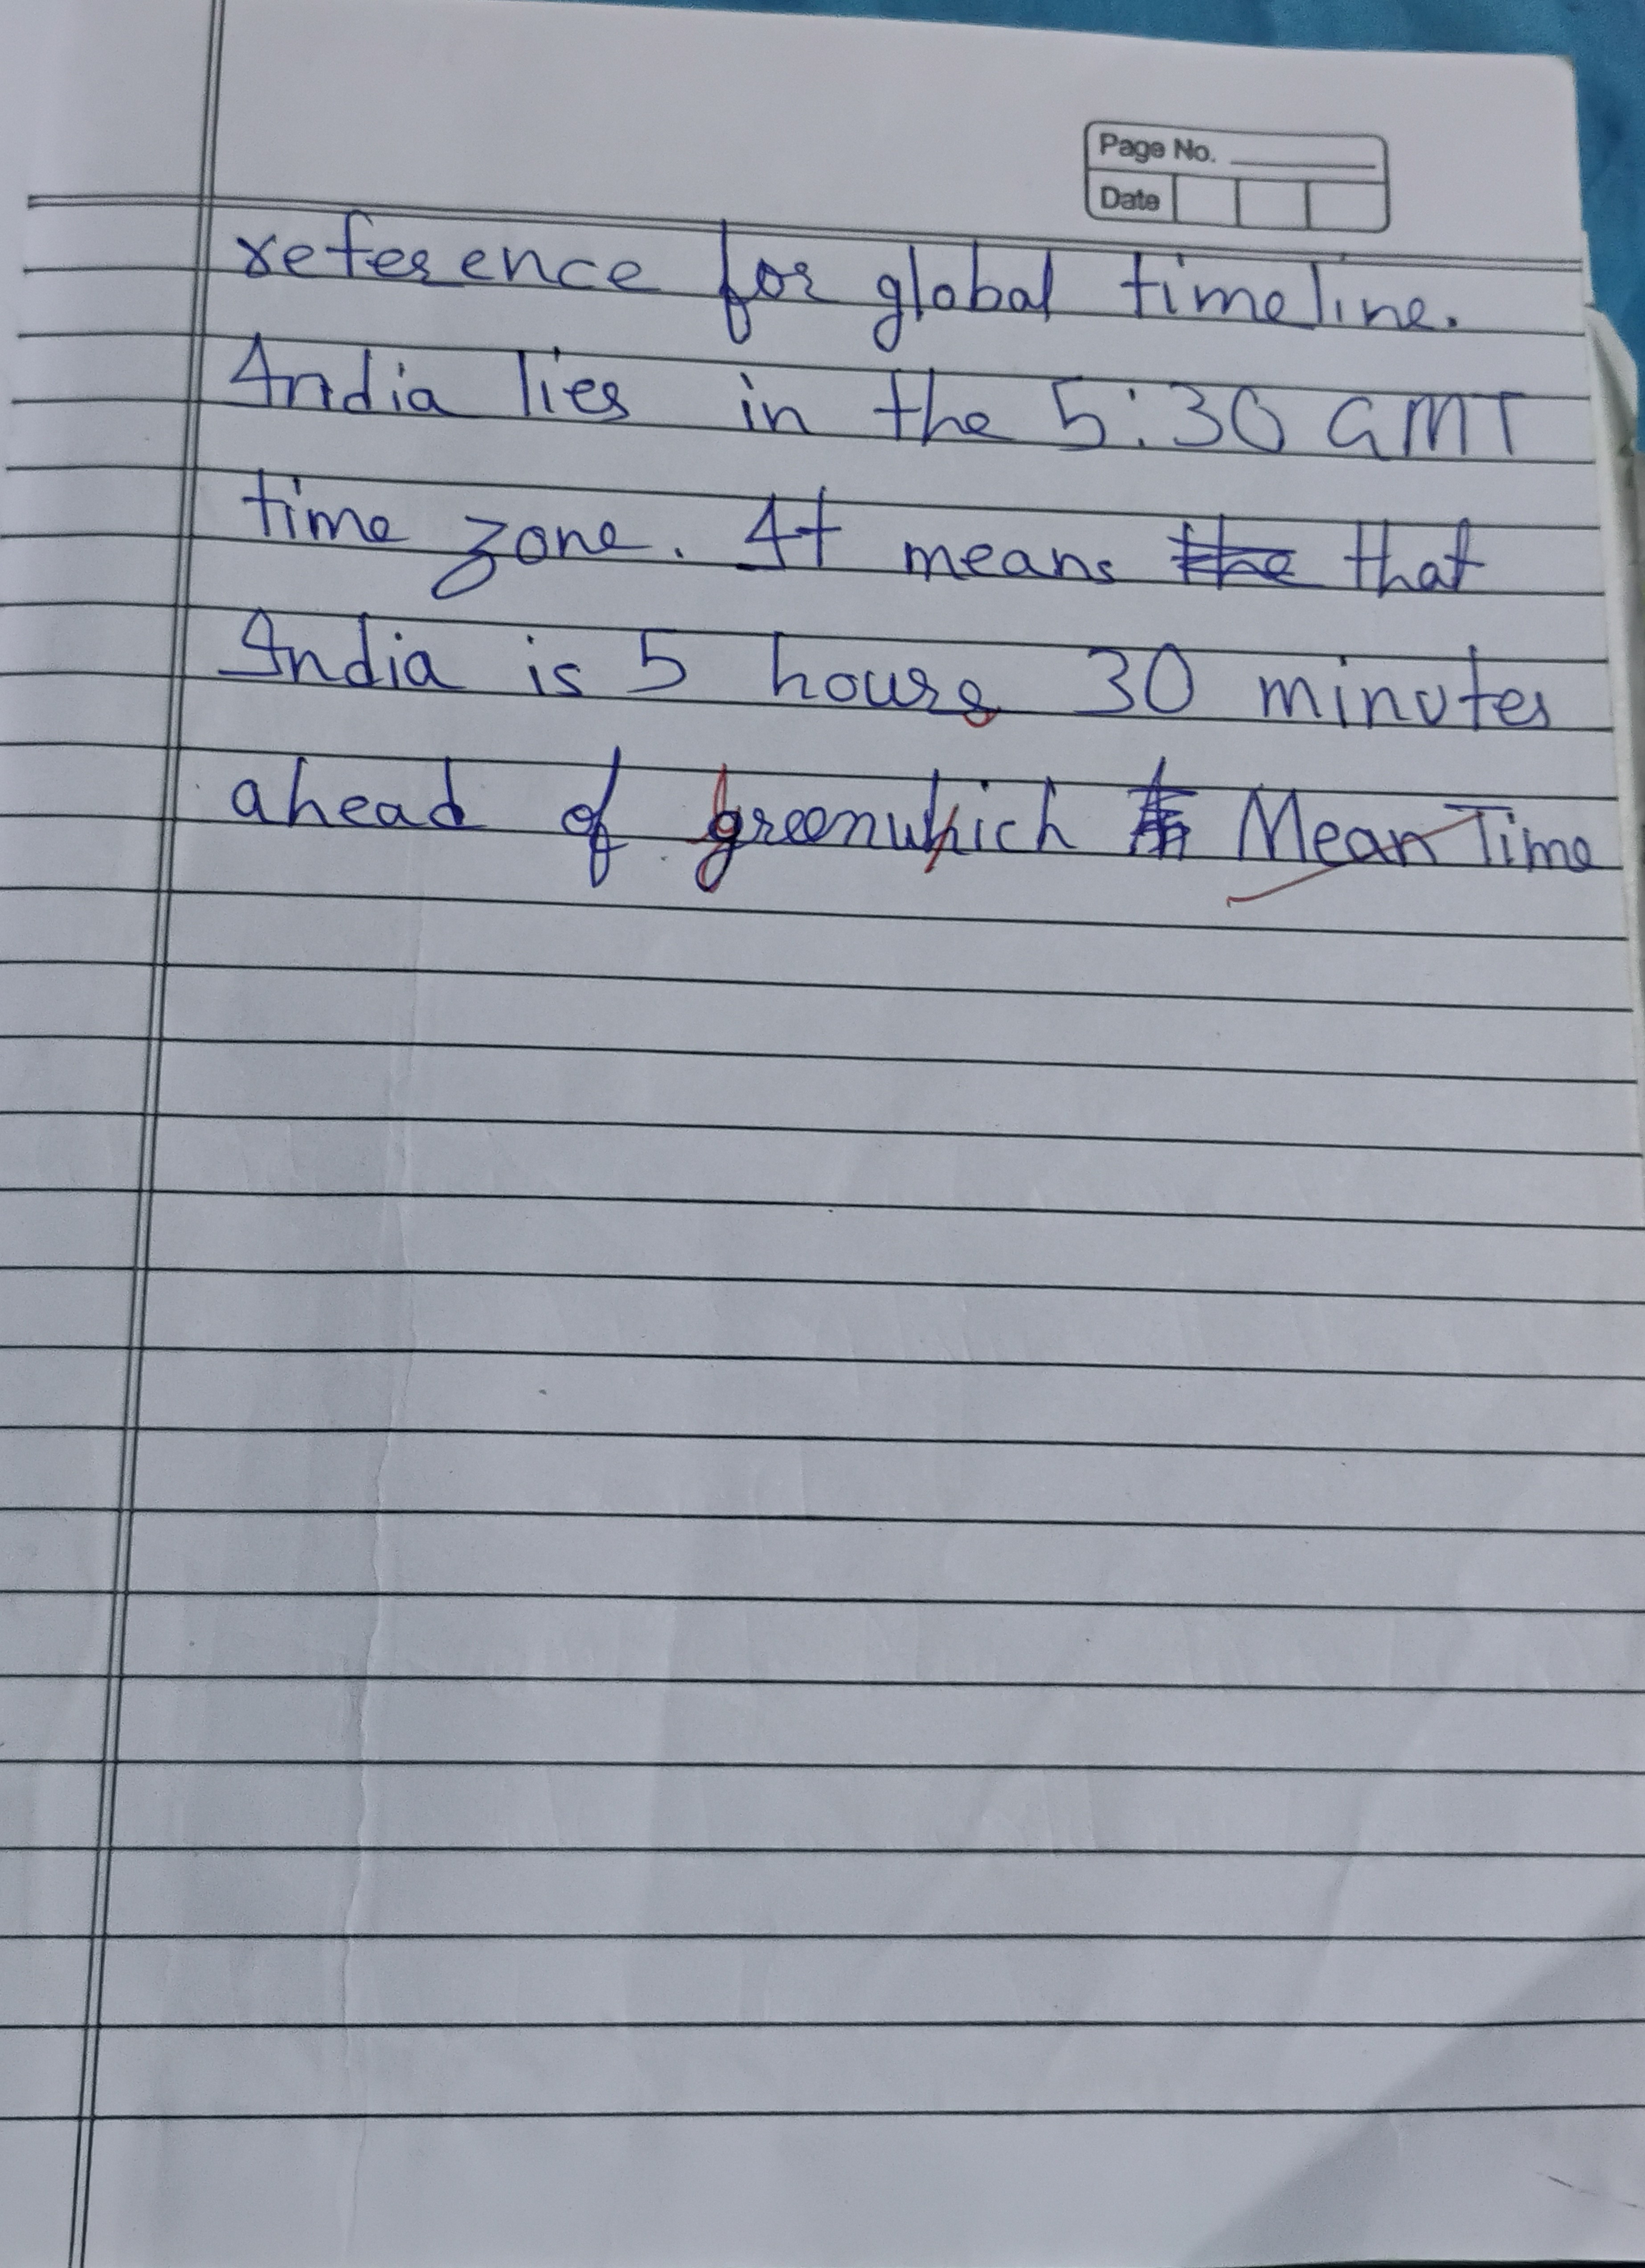 Page No.
Date
reference for global timeline.
India lies in the 5:30 GMT
time zone. It means the that
India is 5 hours 30 minutes
ahead of greenwhich Mean Time